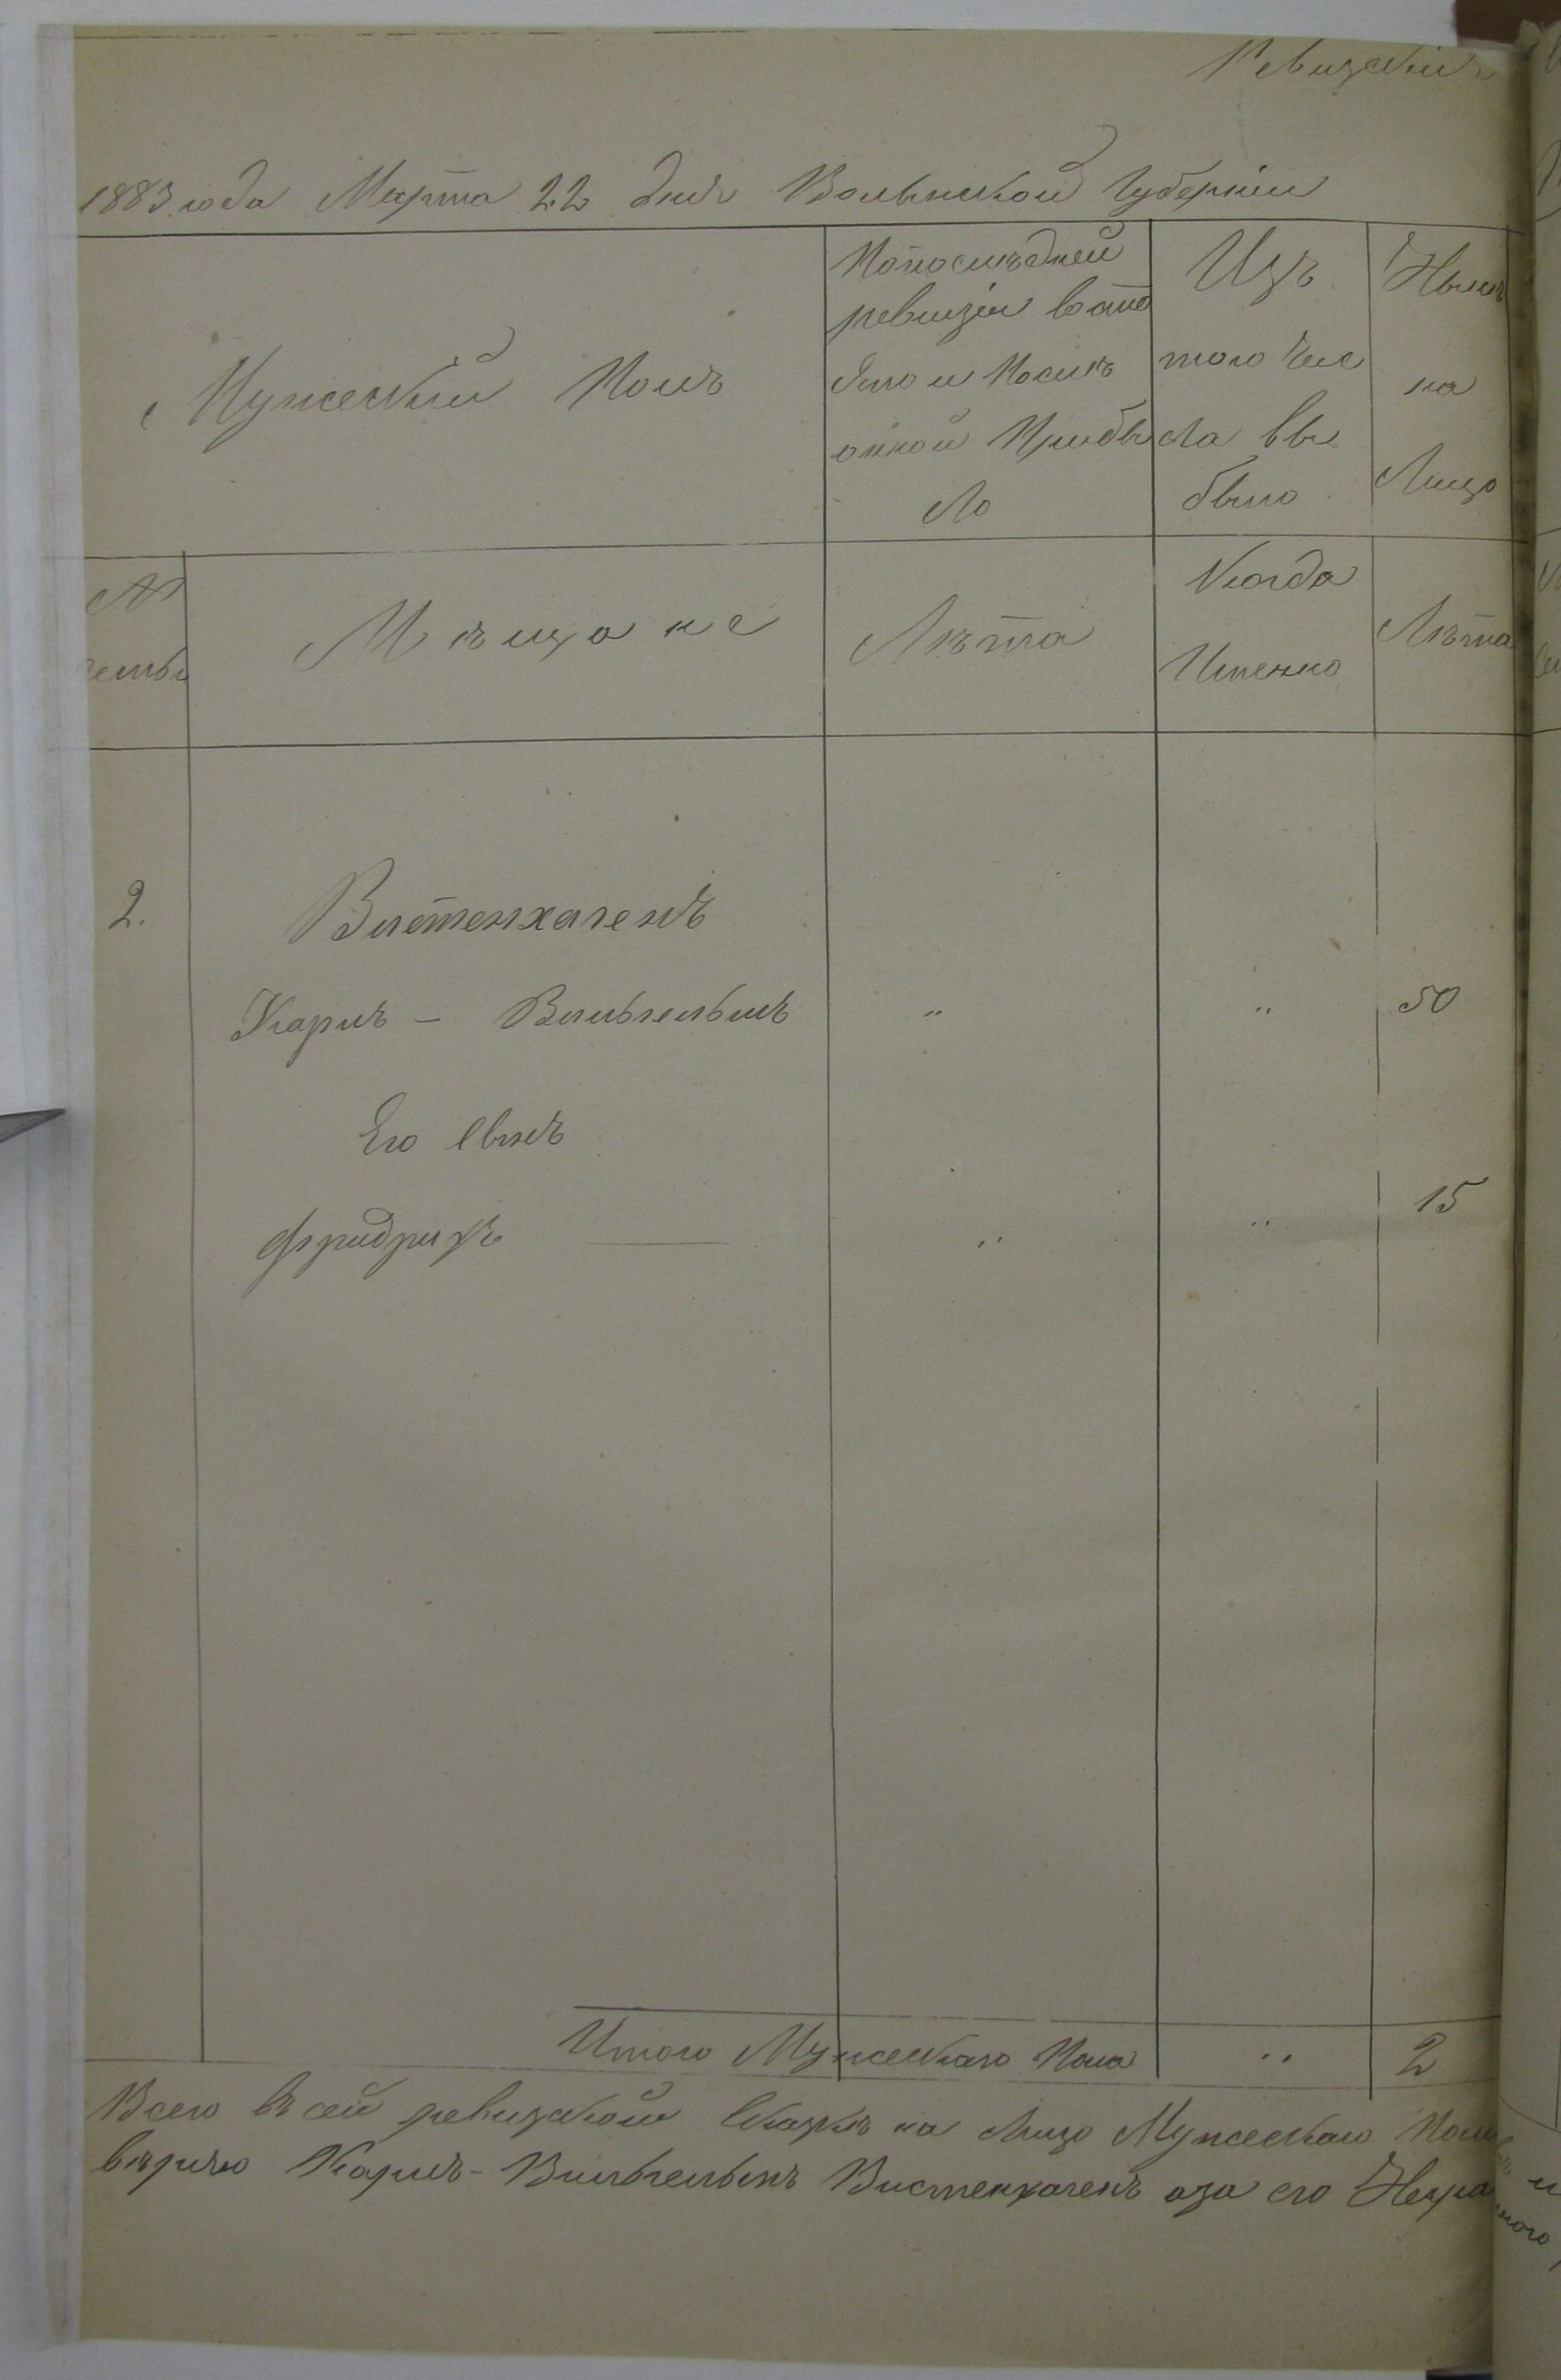 Ревизскія
1883 года Марта 22 дня Волынской Губерніи
Мужескій Полъ
Попослѣдней
ревизіи Состо
яло и Послѣ
онной Прибы
ло
Изъ
того Чис
ла вы
было
Нынѣ
на
Лицо
№
семьи
Мѣщане
Лѣта
Когда
Именно
Лѣта
2.
Вистенхагенъ
Карлъ - Вильгельмъ " " 50
Его Сынъ
Фридрихъ " " 15
Итого Мужескаго Пола " 2
Всего в сей ревизской Сказкѣ на Лицо Мужескаго Пола
вѣрно Карлъ-Вильгельмъ Вистенхагенъ аза его Негра